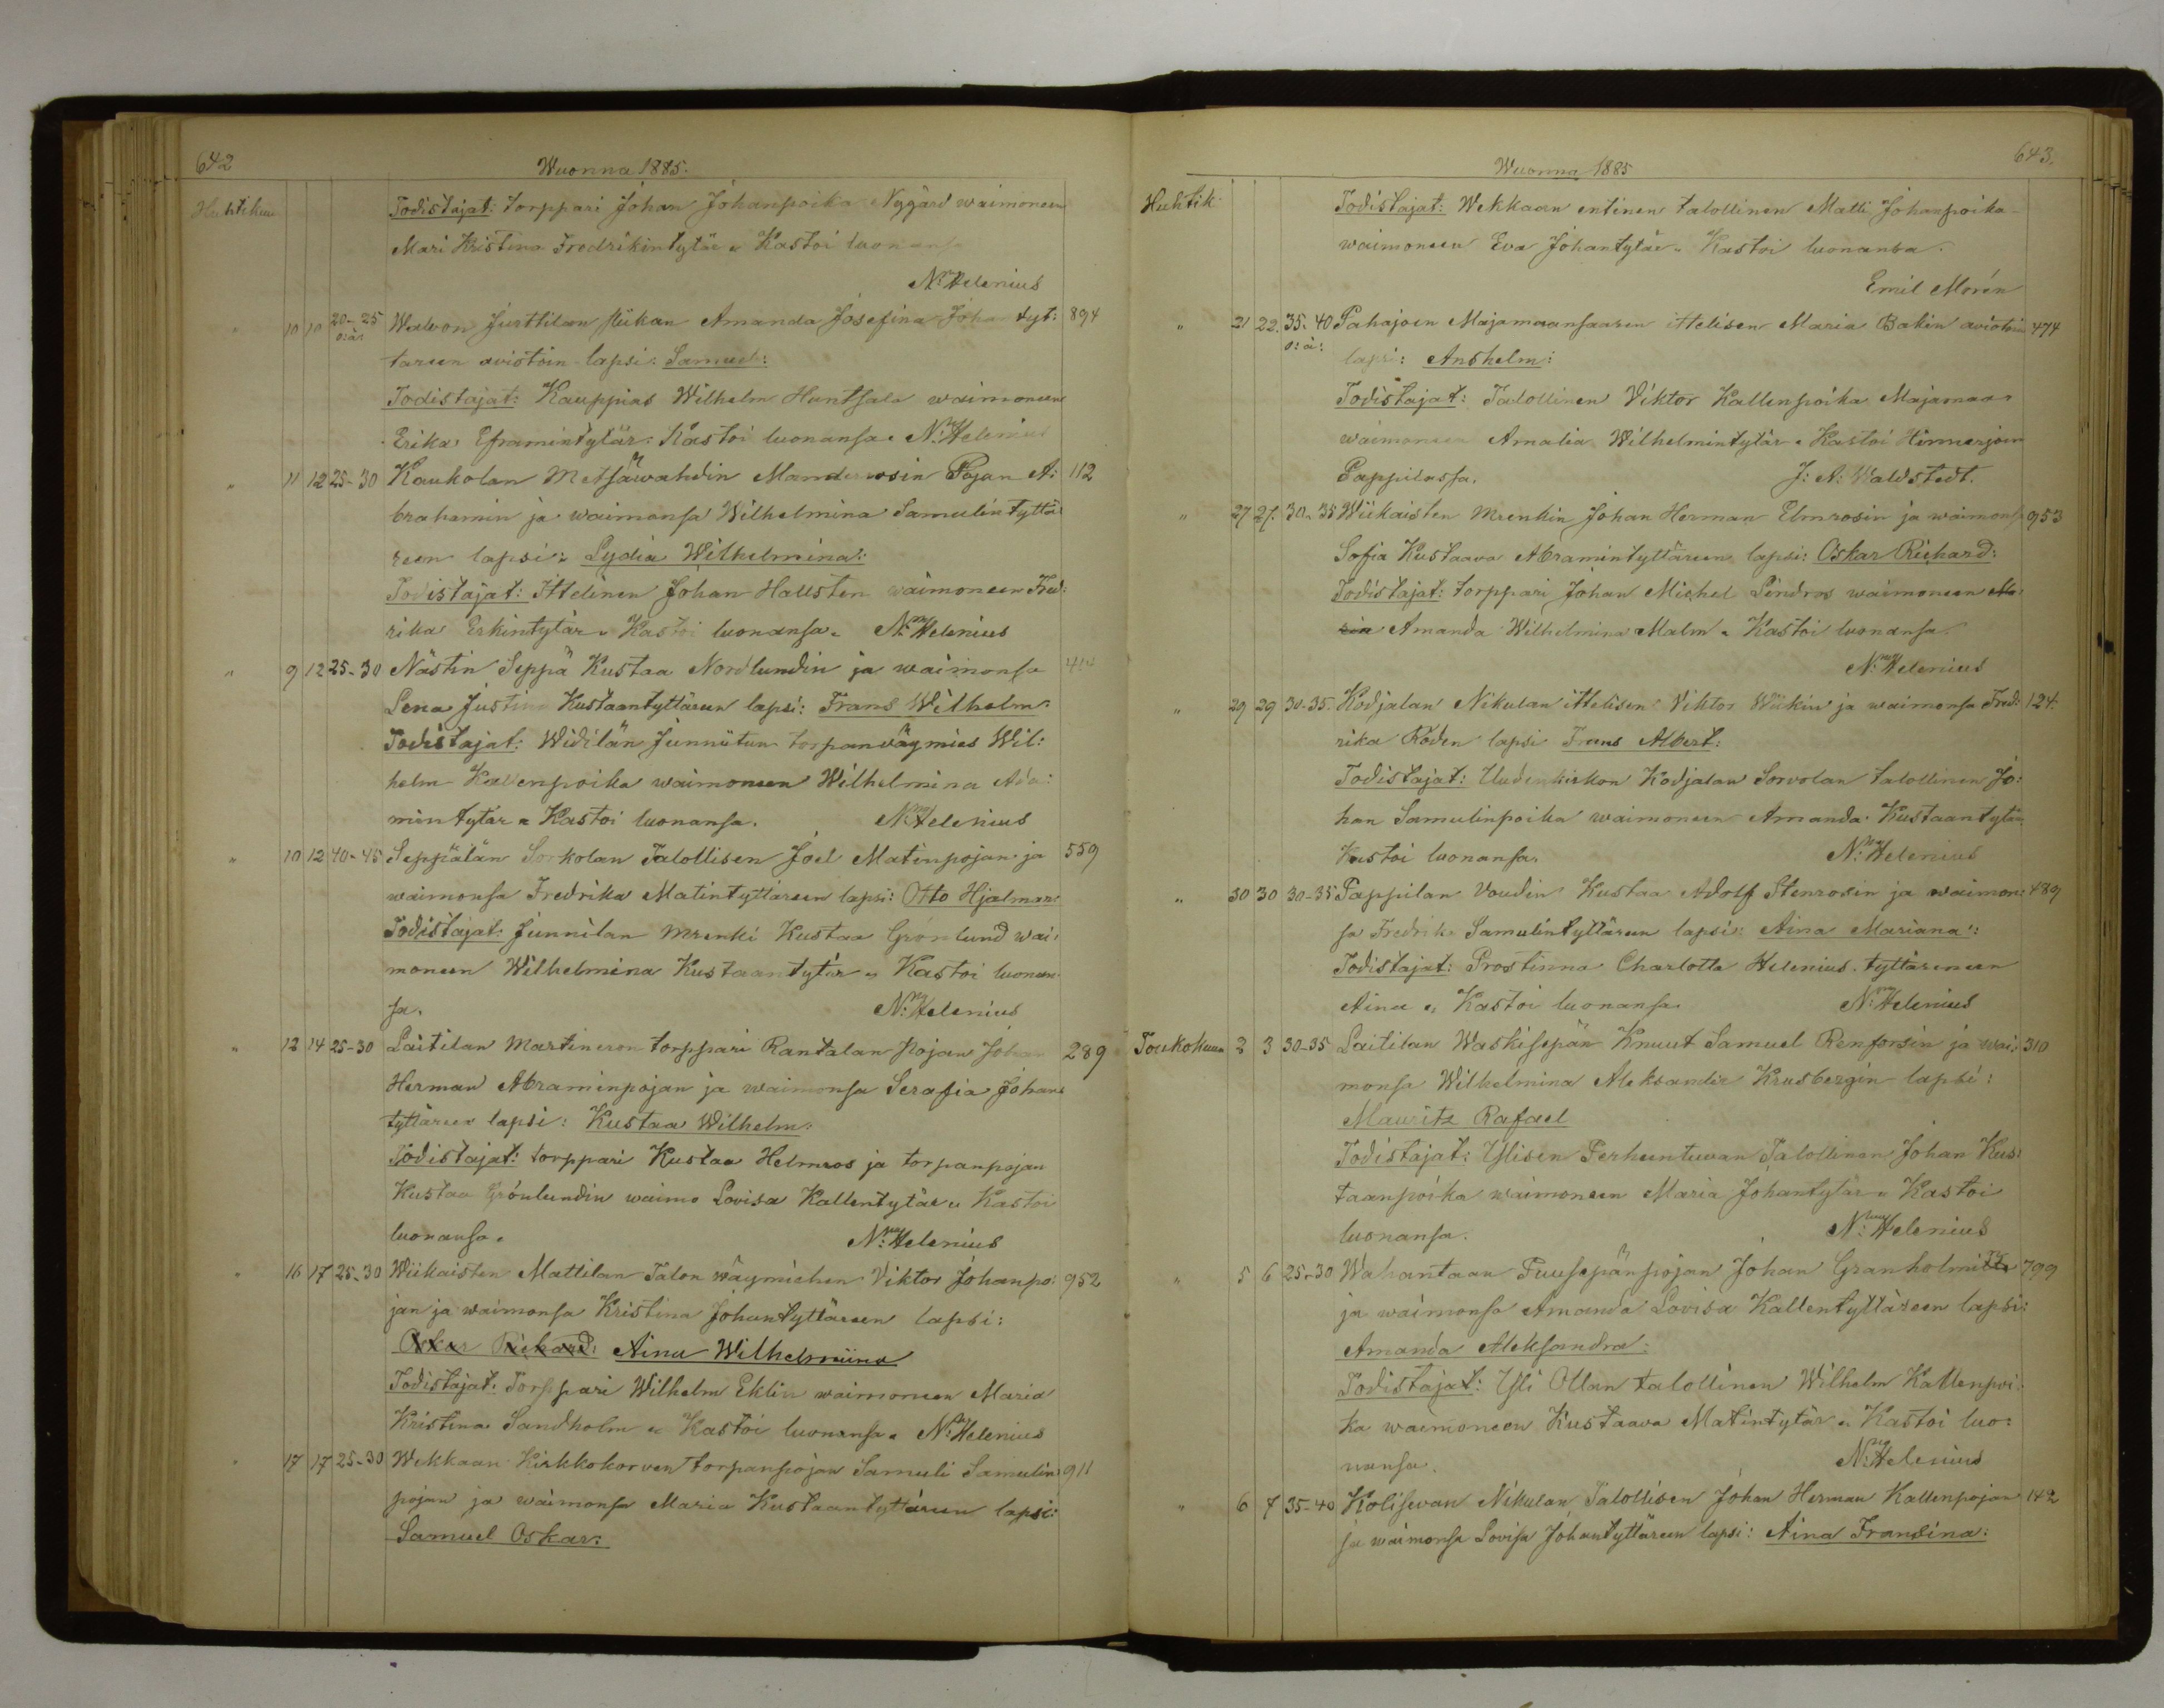 642
Wuonna 1885.
Huhtikuu
Todistajat: torppari Johan Johanpoika Nygård waimoneen
Mari Kristina Fredrikintytär „ Kastoi luonansa
N: Helenius
„ 10 10 20-25 Walwon Junttilan piikan Amanda Josefina Johantyt: 894
o: ä:
täreen aviotoin lapsi: Samuel:
Todistajat: Kauppias Wilhelm Huntsala waimoneen
Erika Eframintytär. Kastoi luonansa. N: Helenius
„ 11 12 25-30 Kaukolan Metsäwahdin Manderosin Pojan A: 112
brahamin ja waimonsa Wilhelmina Samulintyttä:
reen lapsi: Lydia Wilhelmina:
Todistajat: Ittelinen Johan Hallsten waimoneen Fred:
rika Erkintytär „ Kastoi luonansa. N: Helenius
„ 9 12 25-30 Nästin Seppä Kustaa Nordlundin ja waimonsa 414
Lena Justina Kustaantyttäreen lapsi: Frans Wilhelm:
Todistajat: Widilän Junnitun torpanwäymies Wil:
helm Kallenpoika waimoneen Wilhelmina Ada:
mintytär „ Kastoi luonansa. N: Helenius
„ 10 12 40-45 Seppälän Sorkolan Talollisen Joel Matinpojan ja 559
waimonsa Fredrika Matintyttäreen lapsi: Otto Hjalmar:
Todistajat: Junnilan Mrenki Kustaa Grönlund wai:
moneen Wilhelmina Kustaantytär „ Kastoi luonan:
sa. N: Helenius
„ 12 14 25-30 Laitilan Martineron torppari Rantalan Pojan Johan 289
Herman Abraminpojan ja waimonsa Serafia Johans
tyttäreen lapsi: Kustaa Wilhelm:
Todistajat: torppari Kustaa Helmros ja torpanpojan
Kustaa Grönlundin waimo Lovisa Kallentytär „ Kastoi
luonansa. N: Helenius
„ 16 17 25-30 Wiikaisten Mattilan Talon wäymiehen Viktor Johanpo: 952
jan ja waimonsa Kristina Johantyttäreen lapsi:
Oskar Richard: Aina Wilhelmiina
Todistajat: Torppari Wilhelm Eklin waimoneen Maria
Kristina Sandholm „ Kastoi luonansa. N: Helenius
„ 17 17 25-30 Wekkaan Kirkkokorven torpanpojan Samuli Samulin: 911
pojan ja waimonsa Maria Kustaantyttäreen lapsi:
Samuel Oskar:
643.
Wuonna 1885
Huhtik:
Todistajat: Wekkaan entinen talollinen Matti Johanpoika
waimoneen Eva Johantytär „ Kastoi luonansa.
Emil Morén
„ 21 22. 35-40 Pahajoen Majamaansaaren ittelisen Maria Bakin aviotoin 474
o: ä:
lapsi: Anshelm:
Todistajat: Talollinen Viktor Kallenpoika Majamaa
waimoneen Amalia Wilhelmintytär. Kastoi Hinnerjoen
Pappilassa. J: A: Waldstedt.
„ 27 27. 30-35 Wiikaisten Mrenkin Johan Herman Elmrosin ja waimonsa 953
Sofia Kustaava Abramintyttäreen lapsi: Oskar Richard:
Todistajat: torppari Johan Michel Lindros waimoneen Ma:
ria Amanda Wilhelmina Malm „ Kastoi luonansa.
N: Helenius
„ 29 29 30-35. Kodjalan Nikulan ittelisen Viktor Wiikin ja waimonsa Fred: 124.
rika Roden lapsi Frans Albert:
Todistajat: Uudenkirkon Kodjalan Sorvolan talollinen Jo:
han Samulinpoika waimoneen Amanda Kustaantytär.
Kastoi luonansa. N: Helenius
„ 30 30 30-35 Pappilan Voudin Kustaa Adolf Stenrosin ja waimon: 489
sa Fredrika Samulintyttäreen lapsi: Aina Mariana:
Todistajat: Prostinna Charlotta Helenius tyttäreneen
Aina „ Kastoi luonansa. N: Helenius
Toukokuun 2 3 30-35 Laitilan Waskisepän Knuut Samuel Renforsin ja wai: 310
monsa Wilhelmina Aleksandir Krusbergin lapsi:
Mauritz Rafael
Todistajat: Ylisen Perhuntuvan Talollinen Johan Kus:
taanpoika waimoneen Maria Johantytär „ Kastoi
luonansa. N: Helenius
„ 5 6 25-30 Wahantaan Puusepänpojan Johan Granholmin 799
ja waimonsa Amanda Lovisa Kallentyttäreen lapsi:
Amanda Aleksandra:
Todistajat: Yli Ollan talollinen Wilhelm Kallenpoi:
ka waimoneen Kustaava Matintytär „ Kastoi luo:
nansa. N: Helenius
„ 6 7 35-40 Kolisevan Nikulan Talollisen Johan Herman Kallenpojan 142
ja waimonsa Lovisa Johantyttäreen lapsi: Aina Fransina: